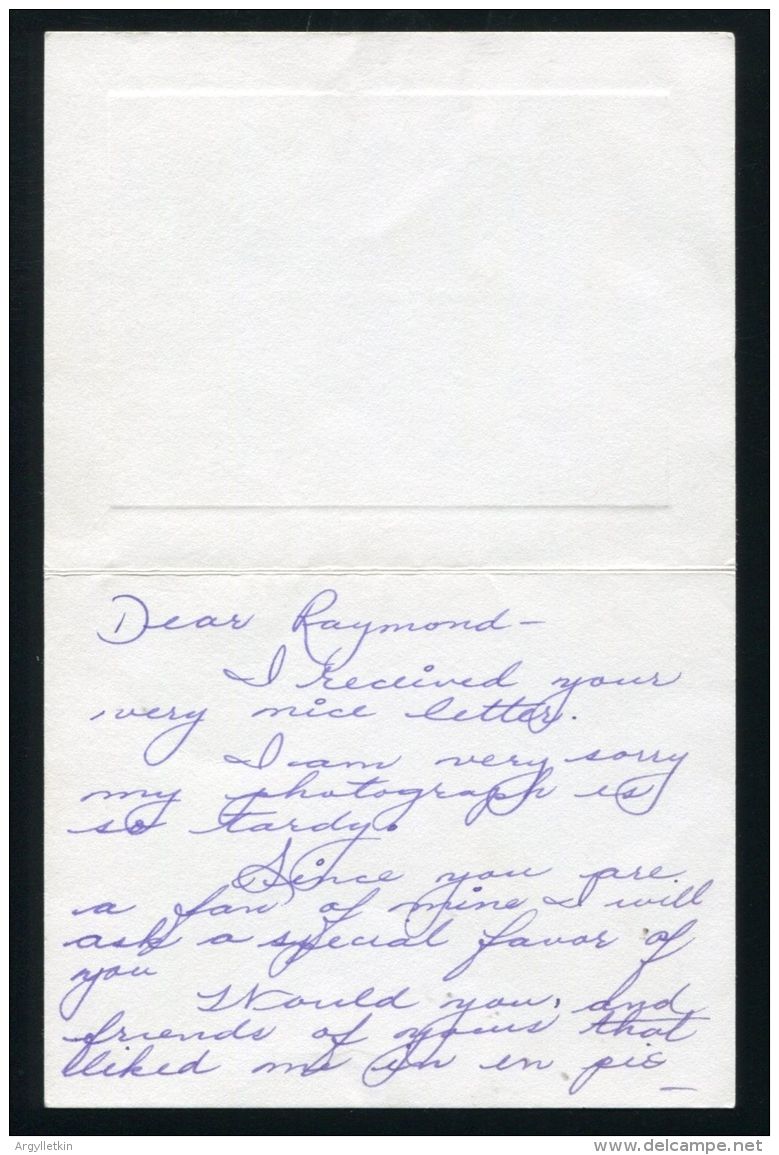 Dear Raymond -
I received your
very nice letter.
I am very sorry
my photograph is
so tardy.
Since you are
a fan of mine I will
ask a special favor of
you
Would you, and
friends of yours that
liked me in en pic
Argylletkin
www.delcampe.net